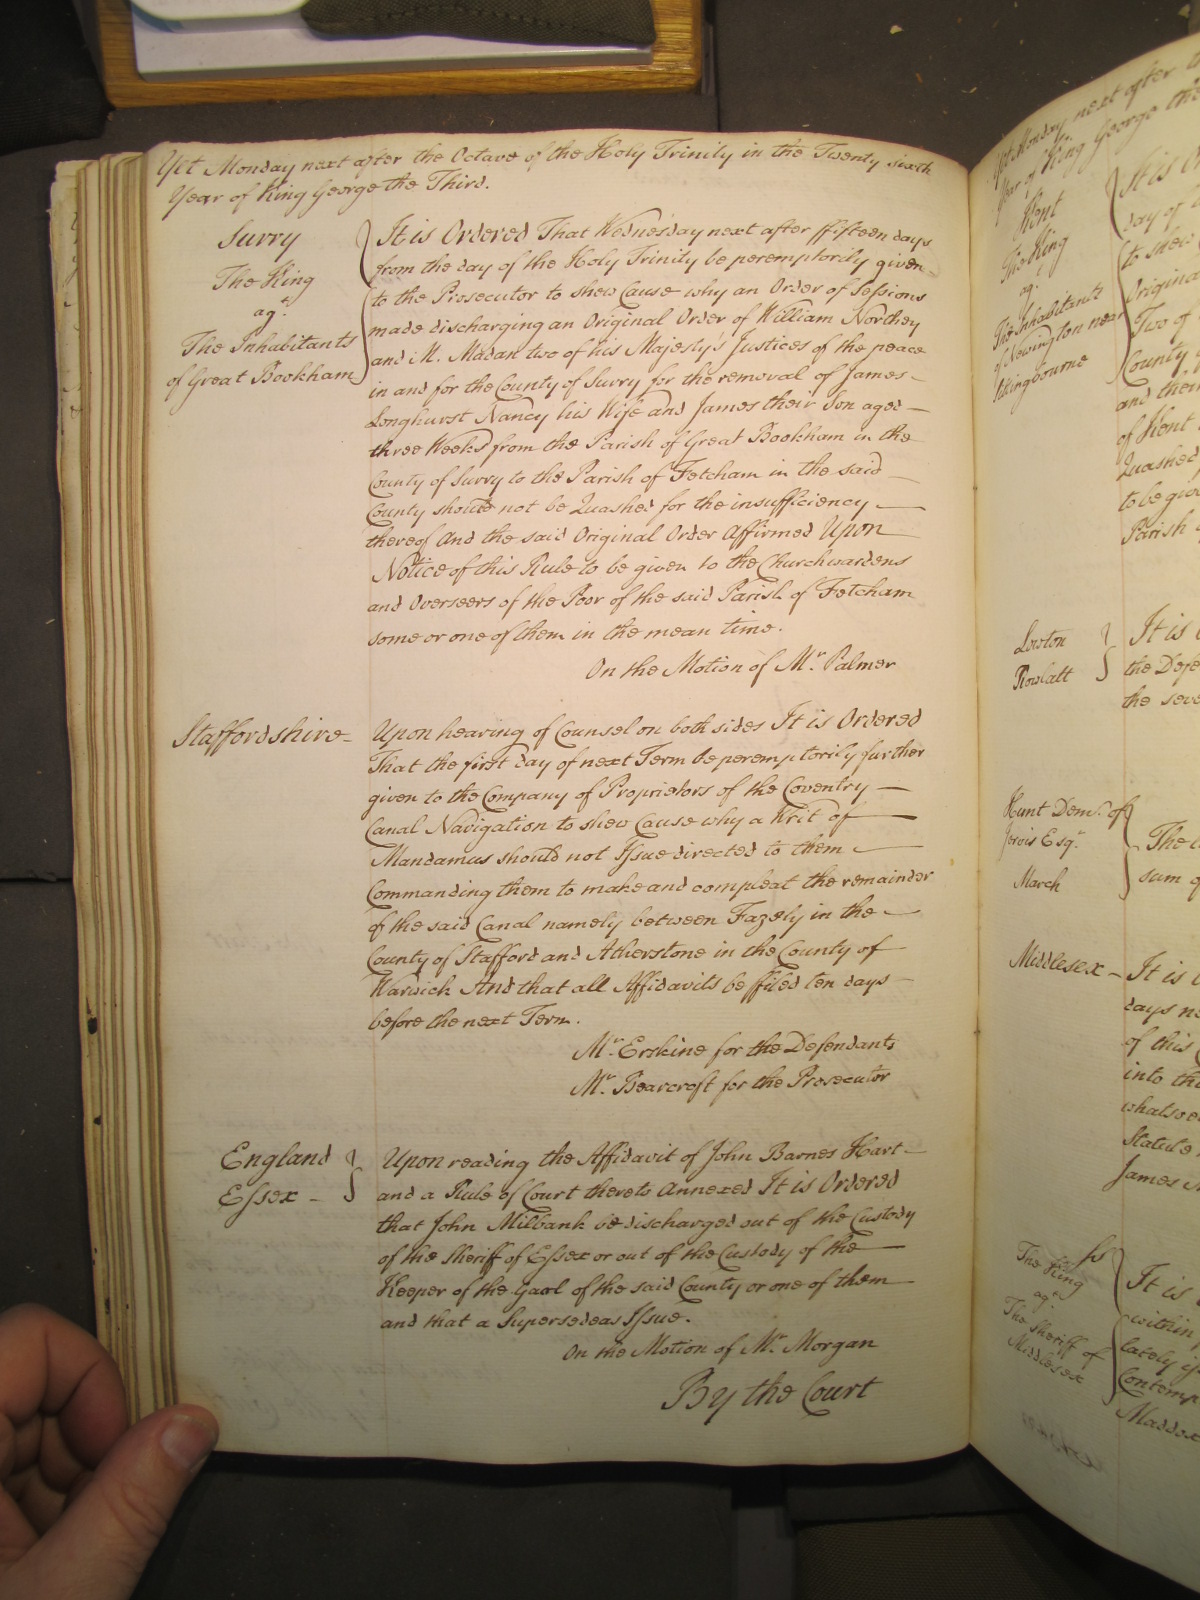 Yet Monday next after the Octave of the Holy Trinity in the Twenty sixth
Year of King George the Third.
Surry
The King
agt.
The Inhabitants
of Great Bookham
It is Ordered That Wednesday next after ffifteen days
from the day of the Holy Trinity be peremptorily given
to the Prosecutor to shew Cause why an Order of Sessions
made discharging an Original Order of William Northey
and M. Madan two of his Majesty's Justices of the peace
in and for the County of Surry for the removal of James
Longhurst Nancy his Wife and James their Son aged
three Weeks from the Parish of Great Bookham in the
County of Surry to the Parish of Fetcham in the said
County should not be Quashed for the insufficiency
thereof And the said Original Order Affirmed Upon
Notice of this Rule to be given to the Churchwardens
and Overseers of the Poor of the said Parish of Fetcham
some or one of them in the mean time.
On the Motion of Mr. Palmer
Staffordshire
Upon hearing of Counsel on both sides It is Ordered
That the first day of next Term be peremptorily further
given to the Company of Proprietors of the Coventry
Canal Navigation to shew Cause why a Writ of
Mandamus should not Issue directed to them
Commanding them to make and compleat the remainder
of the said Canal namely between Fazely in the
County of Stafford and Atherstone in the County of
Warwick And that all Affidavits be ffiled ten days
before the next Term.
Mr. Erskine for the Defendants
Mr. Bearcroft for the Prosecutor
England
Essex
Upon reading the Affidavit of John Barnes Hart
and a Rule of Court thereto Annexed It is Ordered
that John Milbank be discharged out of the Custody
of the Sheriff of Essex or out of the Custody of the
Keeper of the Gaol of the said County or one of them
and that a Supersedeas Issue.
On the Motion of Mr. Morgan
By the Court
Yet Monday next after
Year of King George the
Kent
The King
agt.
The Inhabitants
of Newington near
Sittingbourne
It is
day of
to shew
Original
Two of
County
and their
of Kent
Quashed
to be giv
Parish
Lowton
Rowlatt
It is
the Defe
the seve
Hunt Demt. of
Jervis Esqr.
March
The
sum
Middlesex
It is
days ne
of this
into the
whatsoe
Statute
James
The King
agt.
The Sheriff of
Middlesex
It is
within
lately
Contemp
Maddox